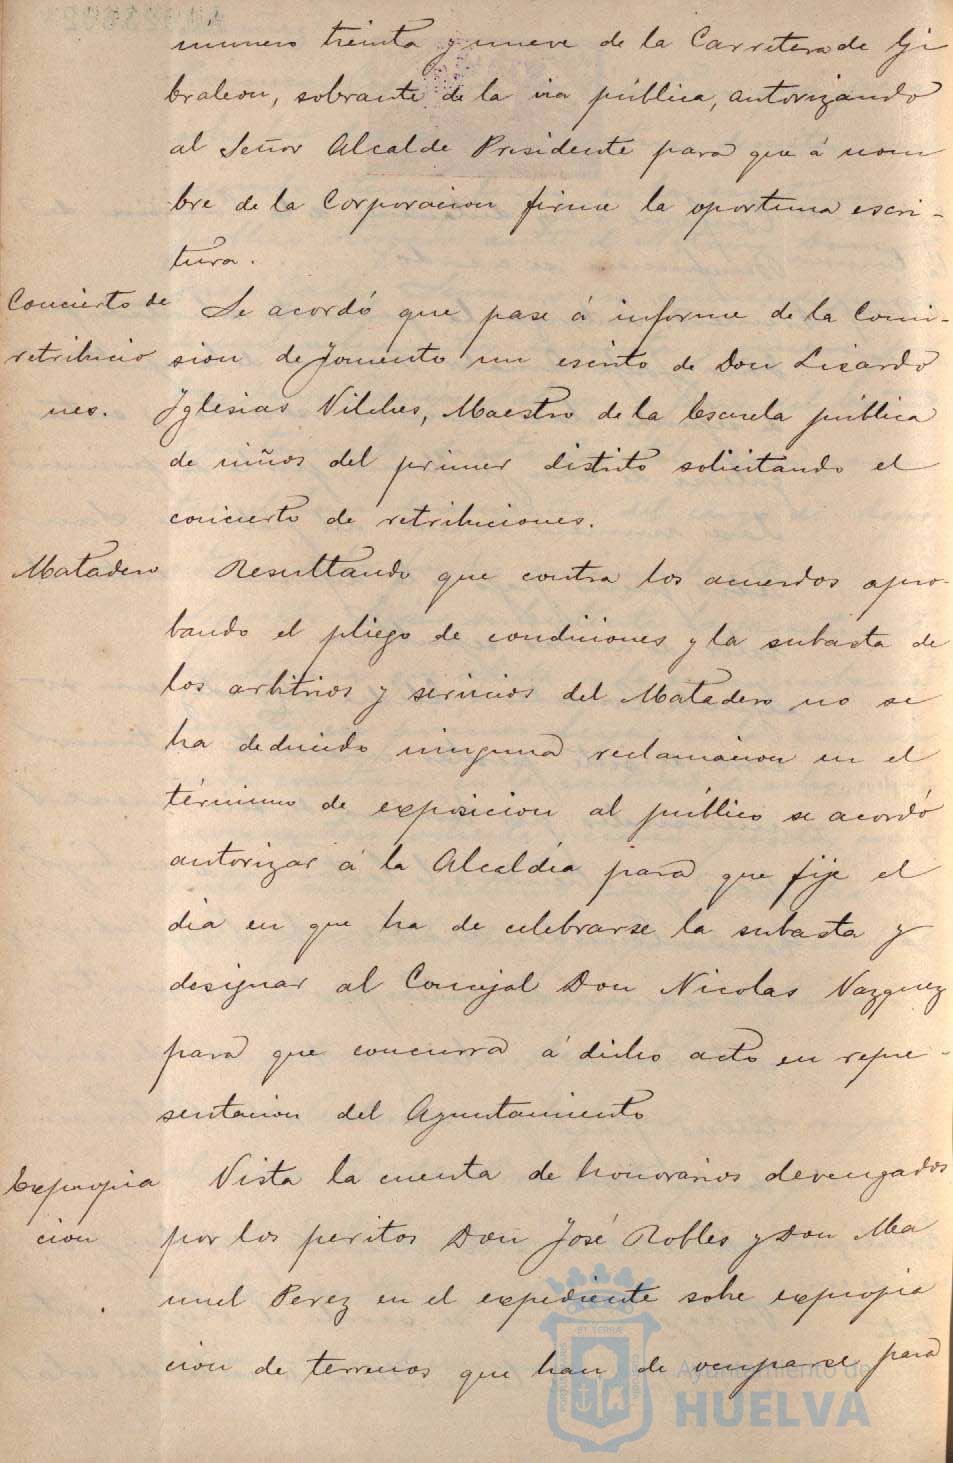 numero treinta y nueve de la Carretera de Gi
braleon, sobrante de la via pública, autorizando
al Señor Alcalde Presidente para que á nom
bre de la Corporacion firme la oportuna escri-
tura.
Concierto de
retribucio
nes.
Se acordó que pase á informe de la Comi-
sion de Fomento un escrito de Don Licardo
Iglesias Vilches, Maestro de la Escuela pública
de niños del primer distrito solicitando el
concierto de retribuciones.
Matadero
Resultando que contra los acuerdos apro-
bando el pliego de condiciones y la subasta de
los arbitrios y servicios del Matadero no se
ha deducido ninguna reclamacion en el
término de exposicion al público se acordó
autorizar á la Alcaldía para que fije el
dia en que ha de celebrarse la subasta y
designar al Concejal Don Nicolas Vazquez
para que concurra á dicho acto en repre-
sentacion del Ayuntamiento
Expropia
cion
Vista la cuenta de honorarios devengados
por los peritos Don José Robles y Don Ma
nuel Perez en el expediente sobre expropia
cion de terrenos que han de ocuparse para
Ayuntamiento de
HUELVA